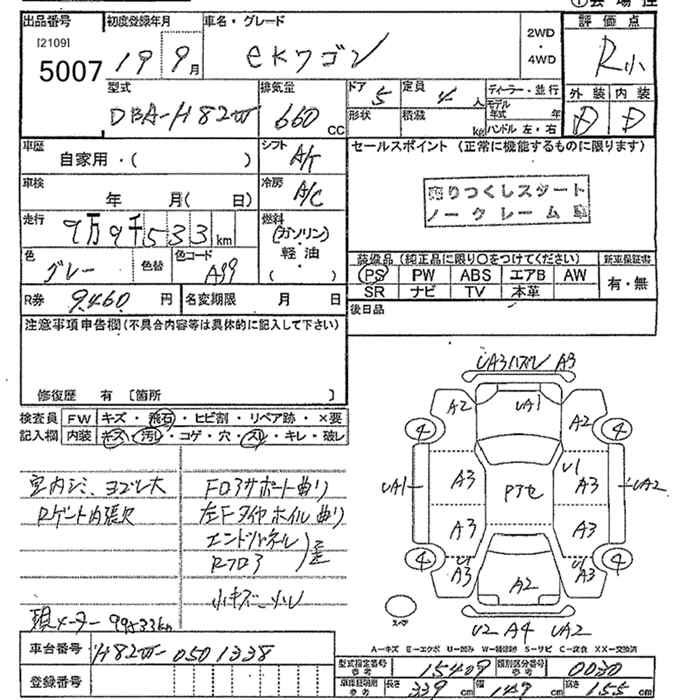 出品番号 初度登録年月 車名・グレード 2WD・4WD 評価点
[2109] 5007 19 9月 eKワゴン R小
型式 排気量 ドア 5 定員 4人 ディーラー・並行 外装 内装
DBA-H82W 660 CC 形状 積載 kg モデル年式 年 ハンドル 左・右 D D
車歴 自家用・( ) シフト A/T セールスポイント (正常に機能するものに限ります)
車検 年 月( 日) 冷房 A/C 売りつくしスタート
ノークレーム
走行 9万9千533km 燃料 (ガソリン)・軽油・( )
色 グレー 色替 色コード A99 装備品 (純正品に限り○をつけてください) 新車保証書
PS PW ABS エアB AW 有・無
R券 9460円 名変期限 月 日 SR ナビ TV 本革
注意事項申告欄(不具合内容等は具体的に記入して下さい) 後日品
修復歴 有 [箇所 ]
検査員 FW キズ・飛石・ヒビ割・リペア跡・×要
記入欄 内装 キズ・汚レ・コゲ・穴・スレ・キレ・破レ
室内ジミ、ヨゴレ大 Fロアサポート曲り
Rゲート内張欠 左Fタイヤホイル曲り
エンドパネル
Rフロア 歪
小キズ
現メーター 99533km
UA3ハズレ A3
A2 UA1 A2
4 4
UA1 A3 Pアセ U1 A3 UA2
A3 A3
4 4
U1 A3 A2 U1 A3
スペア
U2 A4 UA2
A-キズ E-エクボ U-凹み W-補修跡 S-サビ C-腐食 XX-交換済
車台番号 H82W-0501338
登録番号
型式指定番号 参考 15409 類別区分番号 参考 0030
長さ 339cm 幅 147cm 高さ 155cm